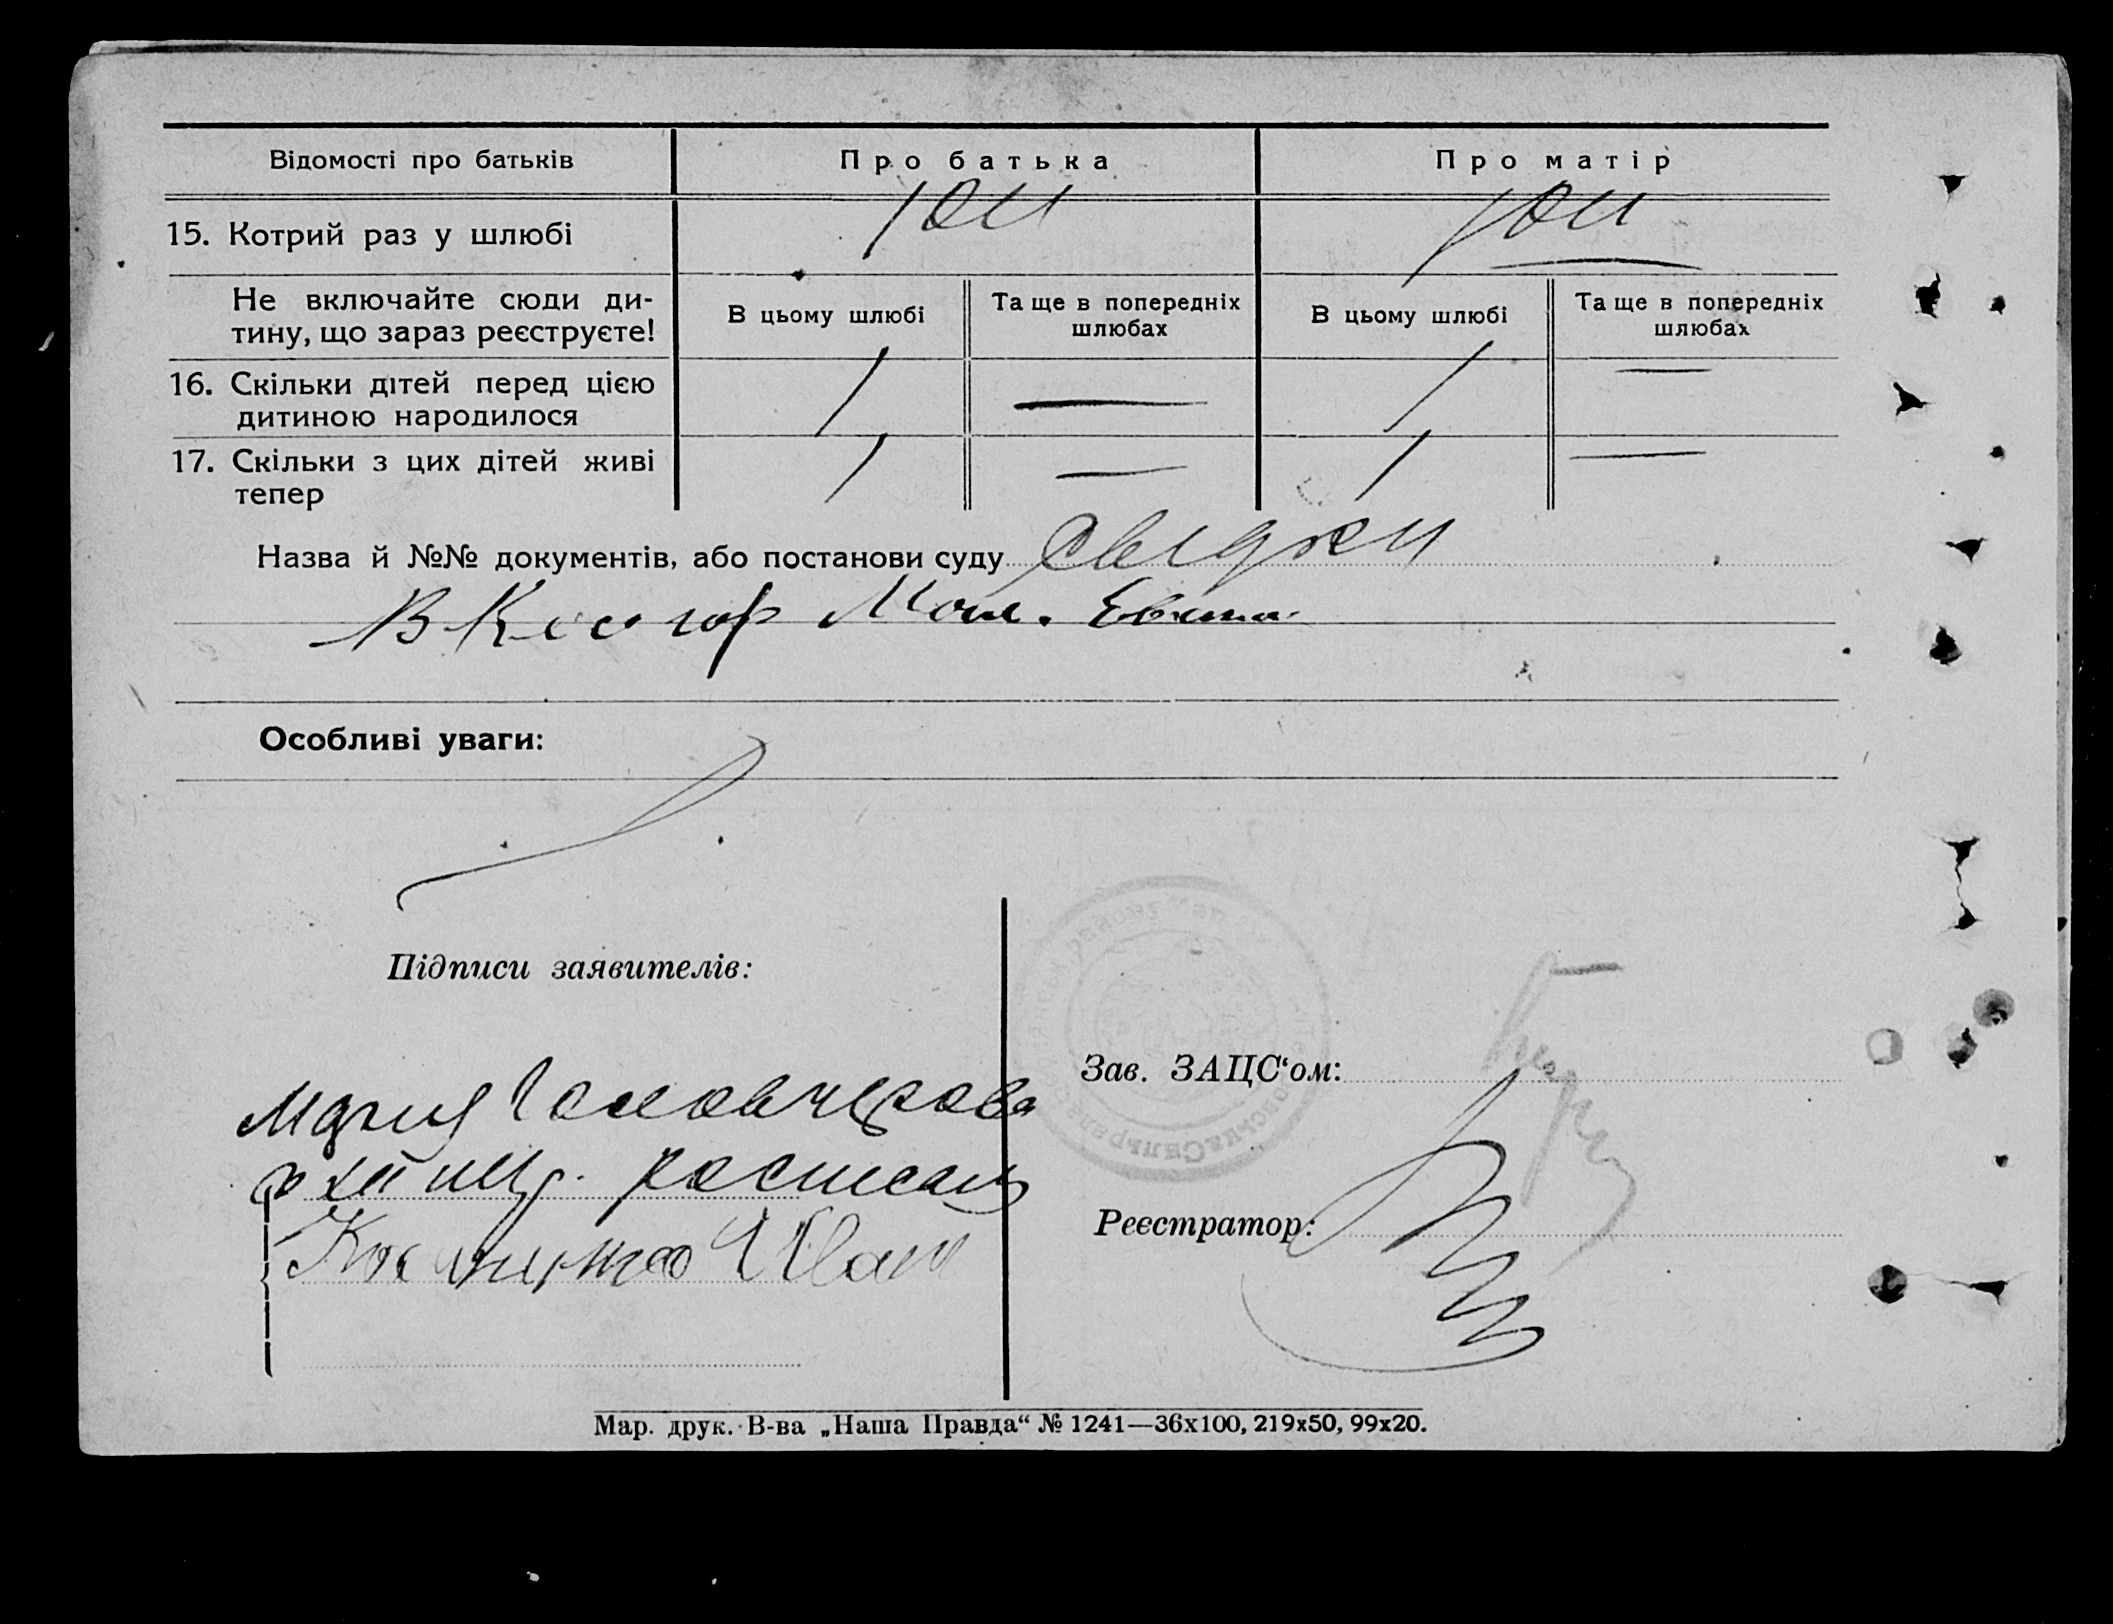 Відомості про батьків
Про батька
Про матір
15. Котрий раз у шлюбі
1ий
1ий
Не включайте сюди ди-
тину, що зараз реєструєте!
В цьому шлюбі
Та ще в попередніх
шлюбах
В цьому шлюбі
Та ще в попередніх
шлюбах
16. Скільки дітей перед цією
дитиною народилося
1
—
1
—
17. Скільки з цих дітей живі
тепер
1
—
1
—
Назва й №№ документів, або постанови суду
Свідки
Особливі уваги:
Підписи заявителів:
Иван
Зав. ЗАЦС‘ом:
Реєстратор:
Мар. друк. В-ва „Наша Правда“ № 1241—36х100, 219х50, 99х20.